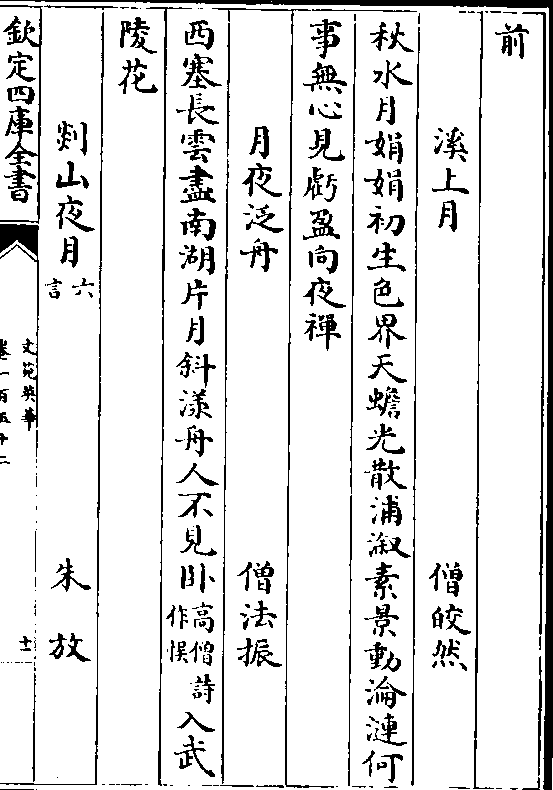 前
溪上月 僧皎然
秋水月娟娟初生色界天蟾光散浦溆素景動淪漣何
事無心見虧盈向夜禪
月夜泛舟 僧法振
西塞長雲盡南湖片月斜漾舟人不見卧高僧詩作悞入武
陵花
剡山夜月六言 朱放
欽定四庫全書
文苑英華
卷一百五十二
十一